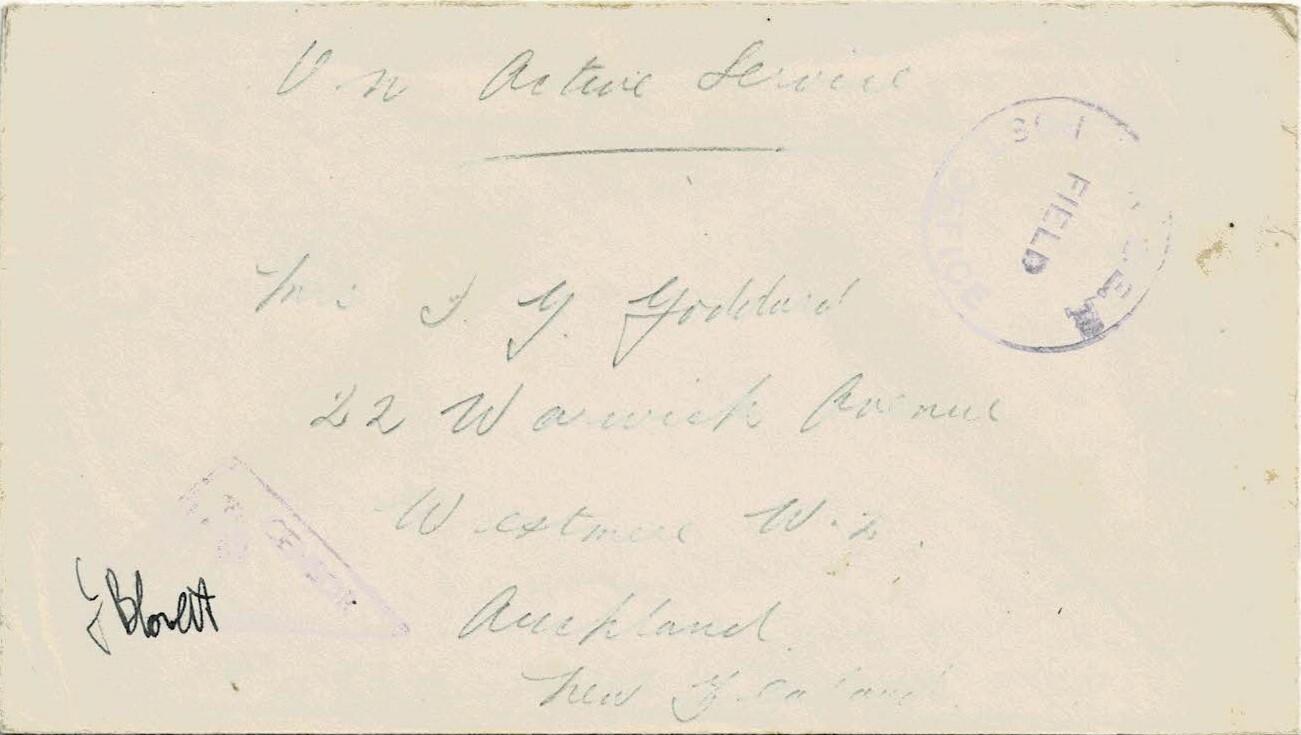 On Active Service
FIELD
OFFICE
Mrs J. Y. Goddard
22 Warwick Avenue
Westmere W.2.
CENSOR
Auckland
New Zealand